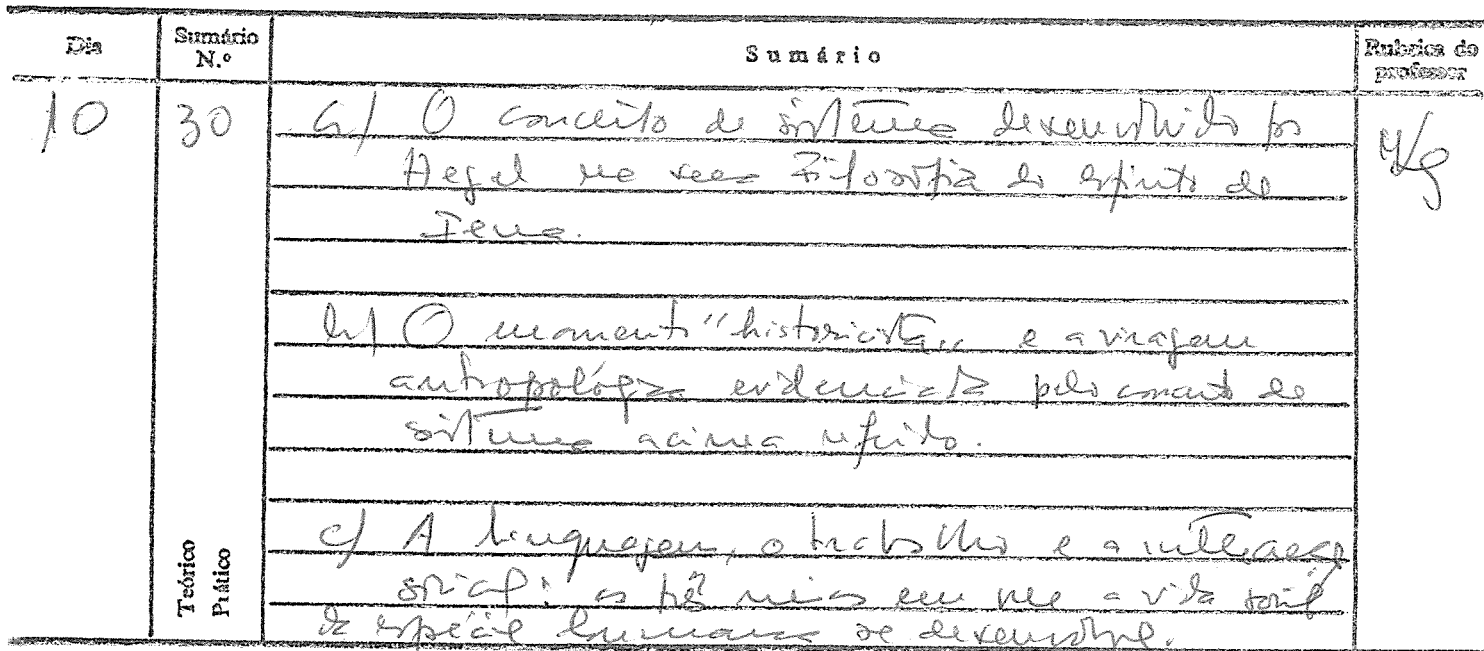 Dia
Sumário N.º
Sumário
Rubrica do professor
10
30
a) O conceito de sistema desenvolvido por
Hegel na sua Filosofia do espírito de
Iena.
b) O momento "historicista" e a viragem
antropológica evidenciada pelo conceito de
sistema acima referido.
c) A linguagem, o trabalho e a interacção
social: os três meios em que a vida social
da espécie humana se desenvolve.
Teórico
Prático